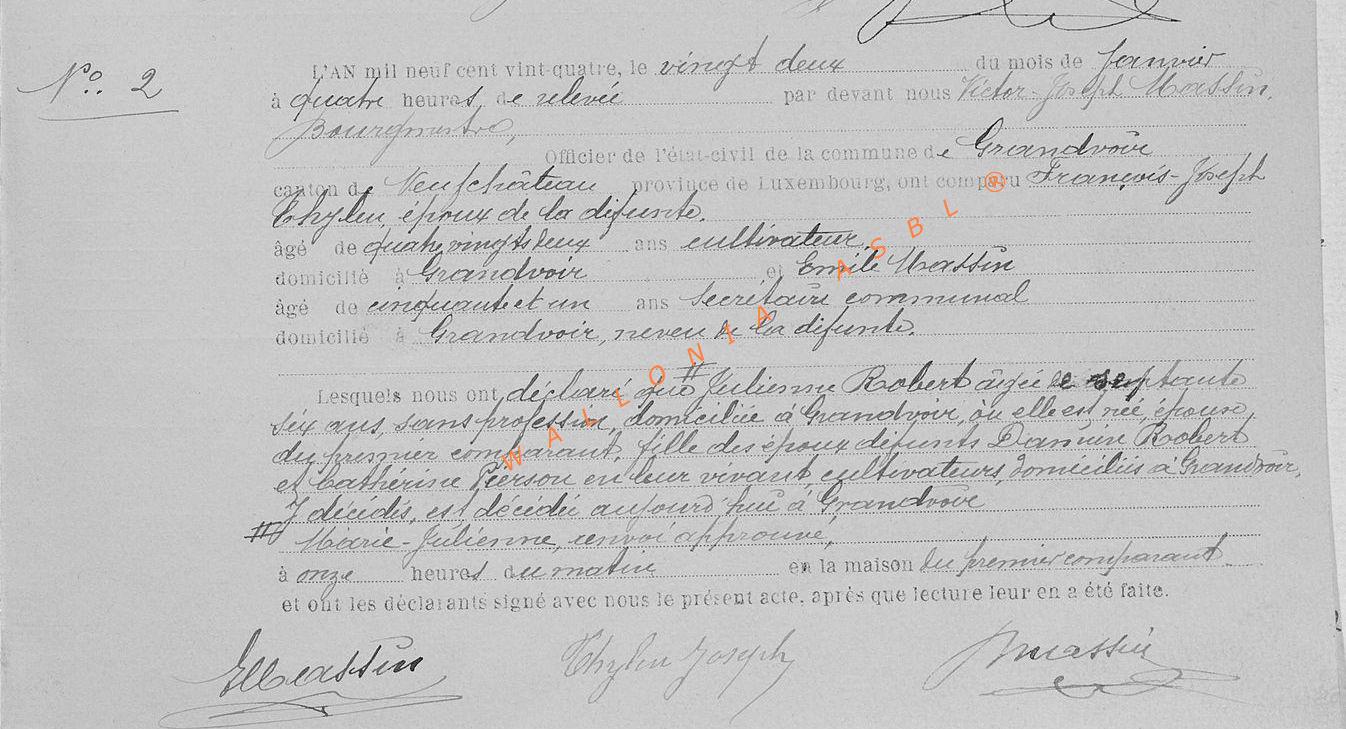 No. 2
L'AN mil neuf cent vint-quatre, le vingt deux du mois de Janvier
à quatre heures de relevée par devant nous Victor-Joseph Massin,
Bourgmestre,
Officier de l'état-civil de la commune de Grandvoir
canton de Neufchâteau province de Luxembourg, ont comparu François-Joseph
Thylen, époux de la défunte.
âgé de quatrevingtdeux ans cultivateur,
domicilié à Grandvoir et Emile Massin
âgé de cinquante et un ans secrétaire communal
domicilié à Grandvoir, neveu de la défunte.
Lesquels nous ont déclaré que # Julienne Robert âgée de septante
six ans, sans profession, domiciliée à Grandvoir, où elle est née, épouse,
du premier comparant, fille des époux défunts Damien Robert
et Cathérine Pierson en leur vivant, cultivateurs, domiciliés à Grandvoir,
Y décédés, est décédée aujourd'hui à Grandvoir
# Marie-Julienne, renvoi approuvé,
à onze heures du matin en la maison du premier comparant
et ont les déclarants signé avec nous le présent acte, après que lecture leur en a été faite.
EMassin Thylen Joseph Massin
WALLONIA ASBL ®